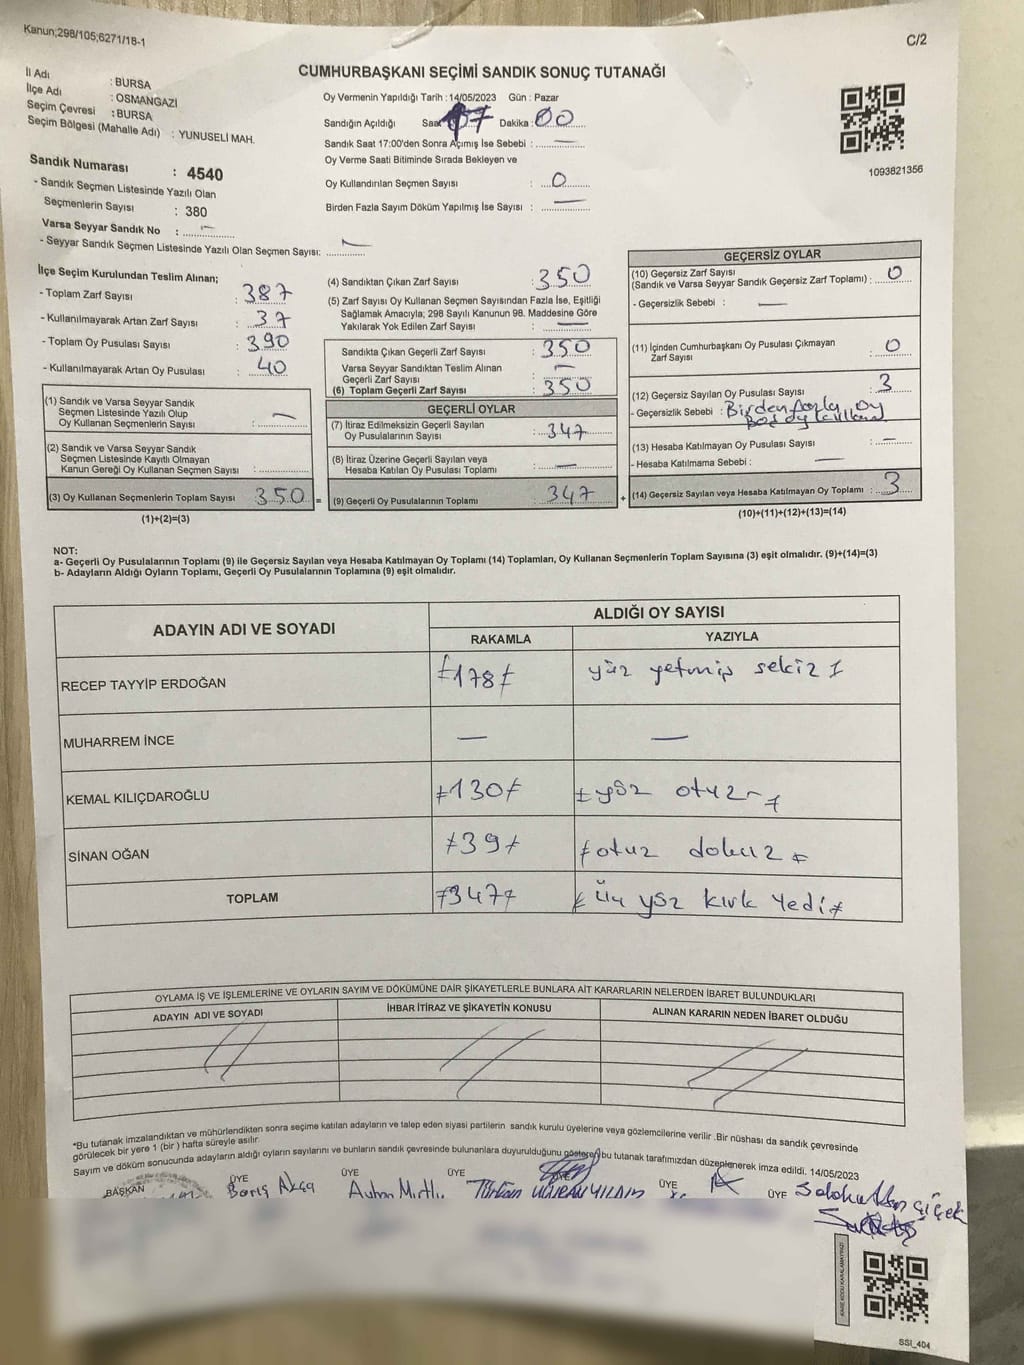 Kanun;298/105;6271/18-1
C/2
CUMHURBAŞKANI SEÇİMİ SANDIK SONUÇ TUTANAĞI
İl Adı : BURSA
İlçe Adı : OSMANGAZİ
Seçim Çevresi : BURSA
Seçim Bölgesi (Mahalle Adı) : YUNUSELİ MAH.
Oy Vermenin Yapıldığı Tarih : 14/05/2023 Gün : Pazar
Sandığın Açıldığı Saat 17 Dakika : 00
Sandık Saat 17:00'den Sonra Açımış İse Sebebi : —
Oy Verme Saati Bitiminde Sırada Bekleyen ve
Oy Kullandırılan Seçmen Sayısı : 0
Birden Fazla Sayım Döküm Yapılmış İse Sayısı : —
1093821356
Sandık Numarası : 4540
- Sandık Seçmen Listesinde Yazılı Olan
Seçmenlerin Sayısı : 380
Varsa Seyyar Sandık No : —
- Seyyar Sandık Seçmen Listesinde Yazılı Olan Seçmen Sayısı: —
İlçe Seçim Kurulundan Teslim Alınan;
- Toplam Zarf Sayısı : 387
- Kullanılmayarak Artan Zarf Sayısı : 37
- Toplam Oy Pusulası Sayısı : 390
- Kullanılmayarak Artan Oy Pusulası : 40
(1) Sandık ve Varsa Seyyar Sandık
Seçmen Listesinde Yazılı Olup
Oy Kullanan Seçmenlerin Sayısı : —
(2) Sandık ve Varsa Seyyar Sandık
Seçmen Listesinde Kayıtlı Olmayan
Kanun Gereği Oy Kullanan Seçmen Sayısı :
(3) Oy Kullanan Seçmenlerin Toplam Sayısı : 350 =
(1)+(2)=(3)
(4) Sandıktan Çıkan Zarf Sayısı : 350
(5) Zarf Sayısı Oy Kullanan Seçmen Sayısından Fazla İse, Eşitliği
Sağlamak Amacıyla; 298 Sayılı Kanunun 98. Maddesine Göre
Yakılarak Yok Edilen Zarf Sayısı : —
Sandıkta Çıkan Geçerli Zarf Sayısı : 350
Varsa Seyyar Sandıktan Teslim Alınan
Geçerli Zarf Sayısı : —
(6) Toplam Geçerli Zarf Sayısı : 350
GEÇERLİ OYLAR
(7) İtiraz Edilmeksizin Geçerli Sayılan
Oy Pusulalarının Sayısı : 347
(8) İtiraz Üzerine Geçerli Sayılan veya
Hesaba Katılan Oy Pusulası Toplamı : —
(9) Geçerli Oy Pusulalarının Toplamı : 347 +
GEÇERSİZ OYLAR
(10) Geçersiz Zarf Sayısı
(Sandık ve Varsa Seyyar Sandık Geçersiz Zarf Toplamı) : 0
- Geçersizlik Sebebi : —
(11) İçinden Cumhurbaşkanı Oy Pusulası Çıkmayan
Zarf Sayısı : 0
(12) Geçersiz Sayılan Oy Pusulası Sayısı : 3
- Geçersizlik Sebebi : Birden fazla oy
Boş oy
(13) Hesaba Katılmayan Oy Pusulası Sayısı : —
- Hesaba Katılmama Sebebi : —
(14) Geçersiz Sayılan veya Hesaba Katılmayan Oy Toplamı : 3
(10)+(11)+(12)+(13)=(14)
NOT:
a- Geçerli Oy Pusulalarının Toplamı (9) ile Geçersiz Sayılan veya Hesaba Katılmayan Oy Toplamı (14) Toplamları, Oy Kullanan Seçmenlerin Toplam Sayısına (3) eşit olmalıdır. (9)+(14)=(3)
b- Adayların Aldığı Oyların Toplamı, Geçerli Oy Pusulalarının Toplamına (9) eşit olmalıdır.
ADAYIN ADI VE SOYADI
ALDIĞI OY SAYISI
RAKAMLA YAZIYLA
RECEP TAYYİP ERDOĞAN 178 yüz yetmiş sekiz
MUHARREM İNCE — —
KEMAL KILIÇDAROĞLU 130 yüz otuz
SİNAN OĞAN 39 otuz dokuz
TOPLAM 347 Üç yüz kırk Yedi
OYLAMA İŞ VE İŞLEMLERİNE VE OYLARIN SAYIM VE DÖKÜMÜNE DAİR ŞİKAYETLERLE BUNLARA AİT KARARLARIN NELERDEN İBARET BULUNDUKLARI
ADAYIN ADI VE SOYADI İHBAR İTİRAZ VE ŞİKAYETİN KONUSU ALINAN KARARIN NEDEN İBARET OLDUĞU
*Bu tutanak imzalandıktan ve mühürlendikten sonra seçime katılan adayların ve talep eden siyasi partilerin sandık kurulu üyelerine veya gözlemcilerine verilir .Bir nüshası da sandık çevresinde
görülecek bir yere 1 (bir ) hafta süreyle asılır.
Sayım ve döküm sonucunda adayların aldığı oyların sayılarını ve bunların sandık çevresinde bulunanlara duyurulduğunu gösteren bu tutanak tarafımızdan düzenlenerek imza edildi. 14/05/2023
BAŞKAN ÜYE ÜYE ÜYE ÜYE ÜYE
Barış Akça
SSİ_404